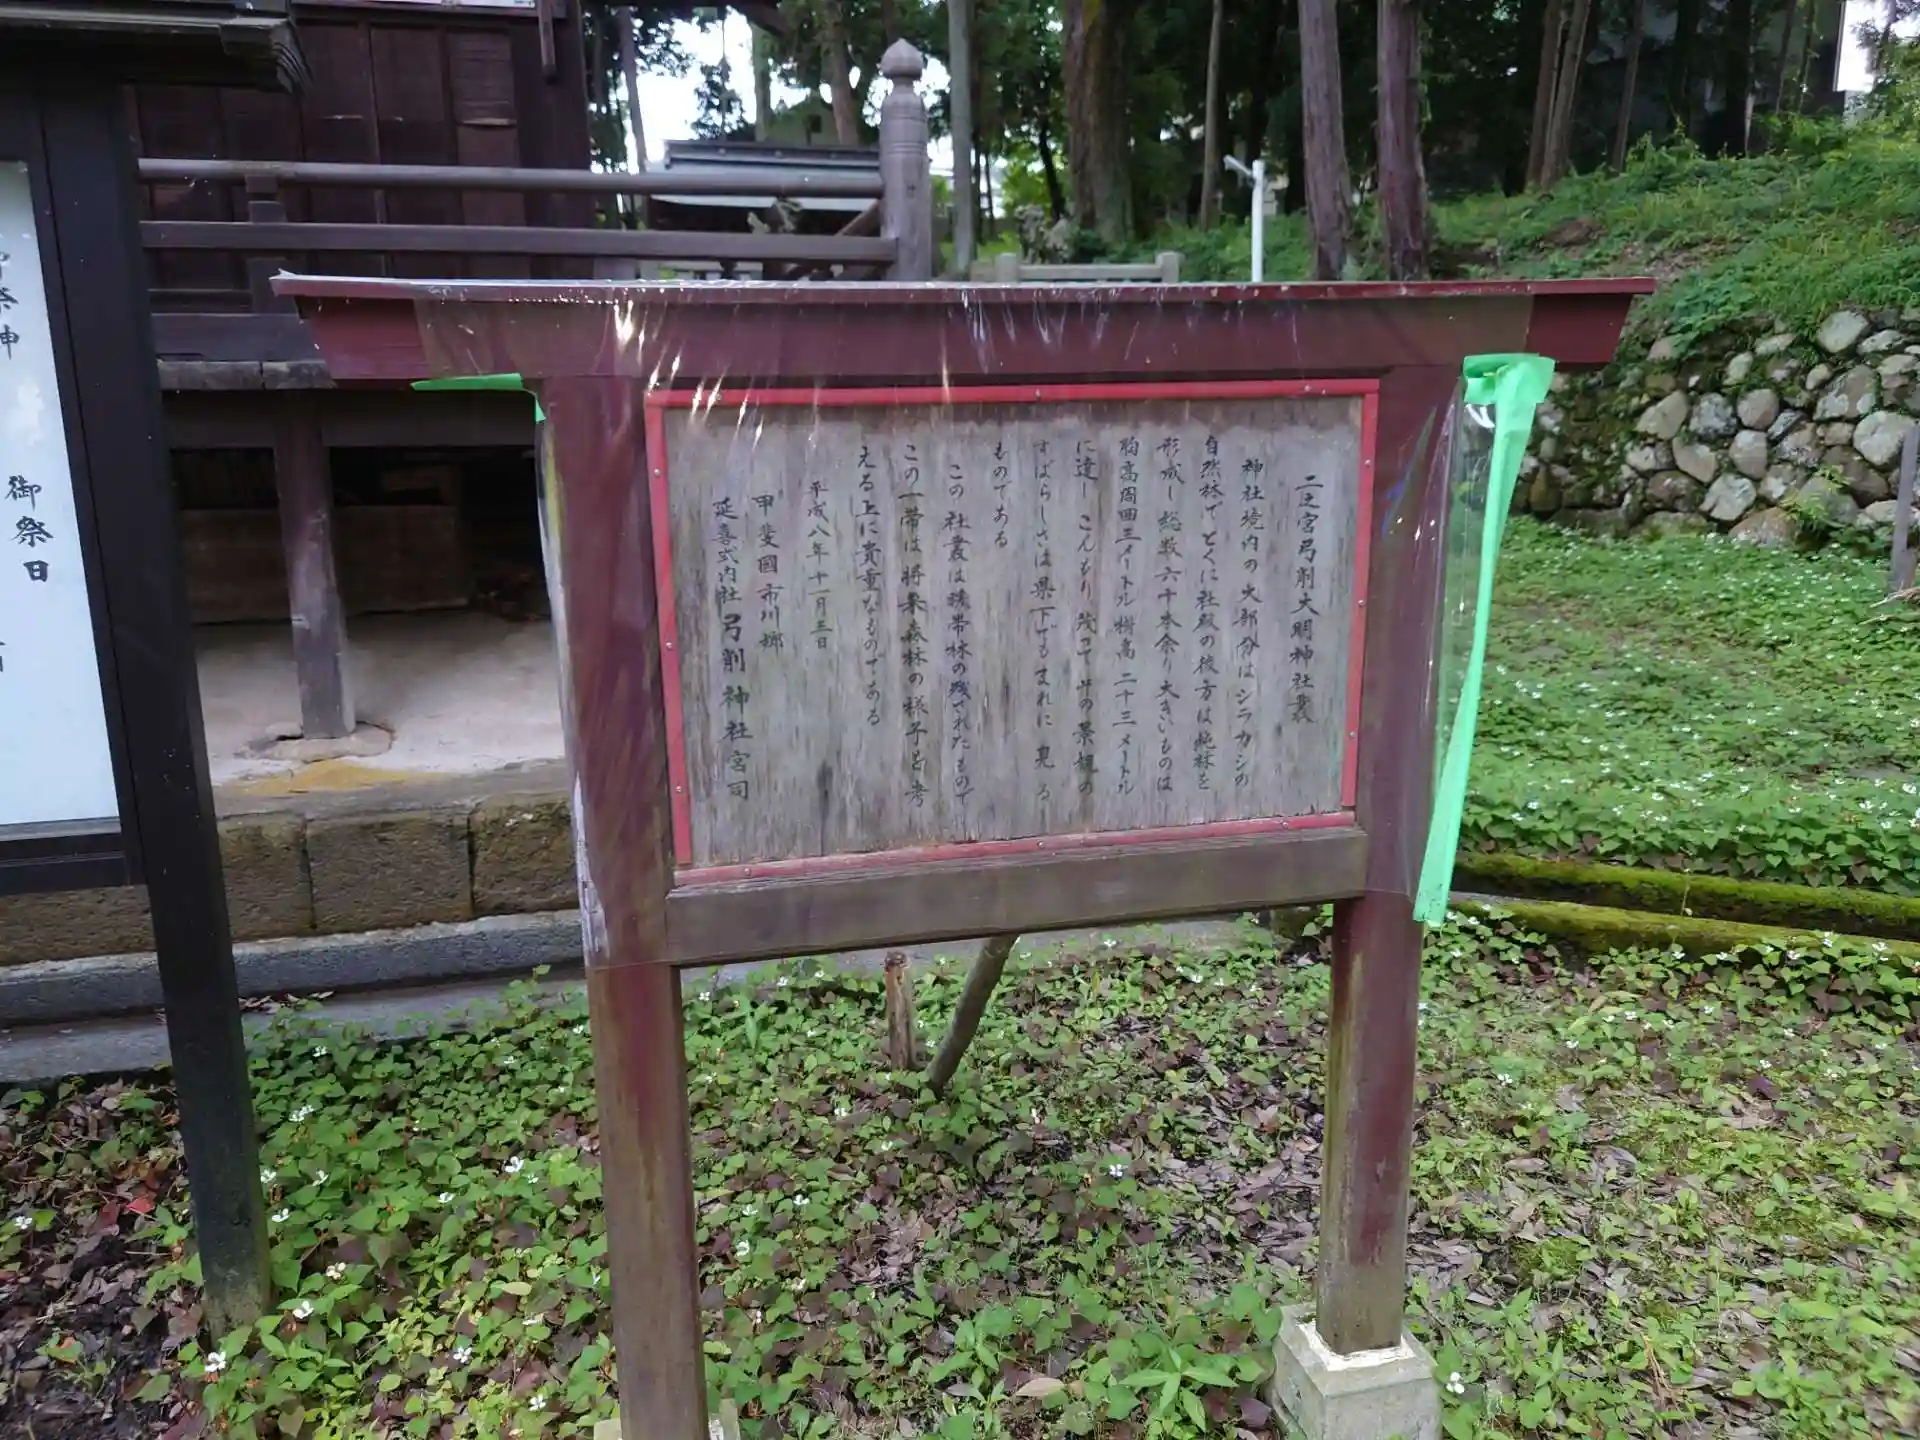 二之宮弓削大明神社叢
神社境内の大部分はシラカシの
自然林でとくに社殿の後方は純林を
形成し総数六十本余り大きいものは
胸高周囲三メートル樹高二十三メートル
に達しこんもり茂って
その景観の
すばらしさは県下でもまれに見る
ものである
この社叢は
帯林の残されたもので
この一帯は将来森林の様子を考
える上に貴重なものである
平成八年十一月三日
甲斐國市川郷
延喜式内社弓削神社宮司
御祭神
御祭日